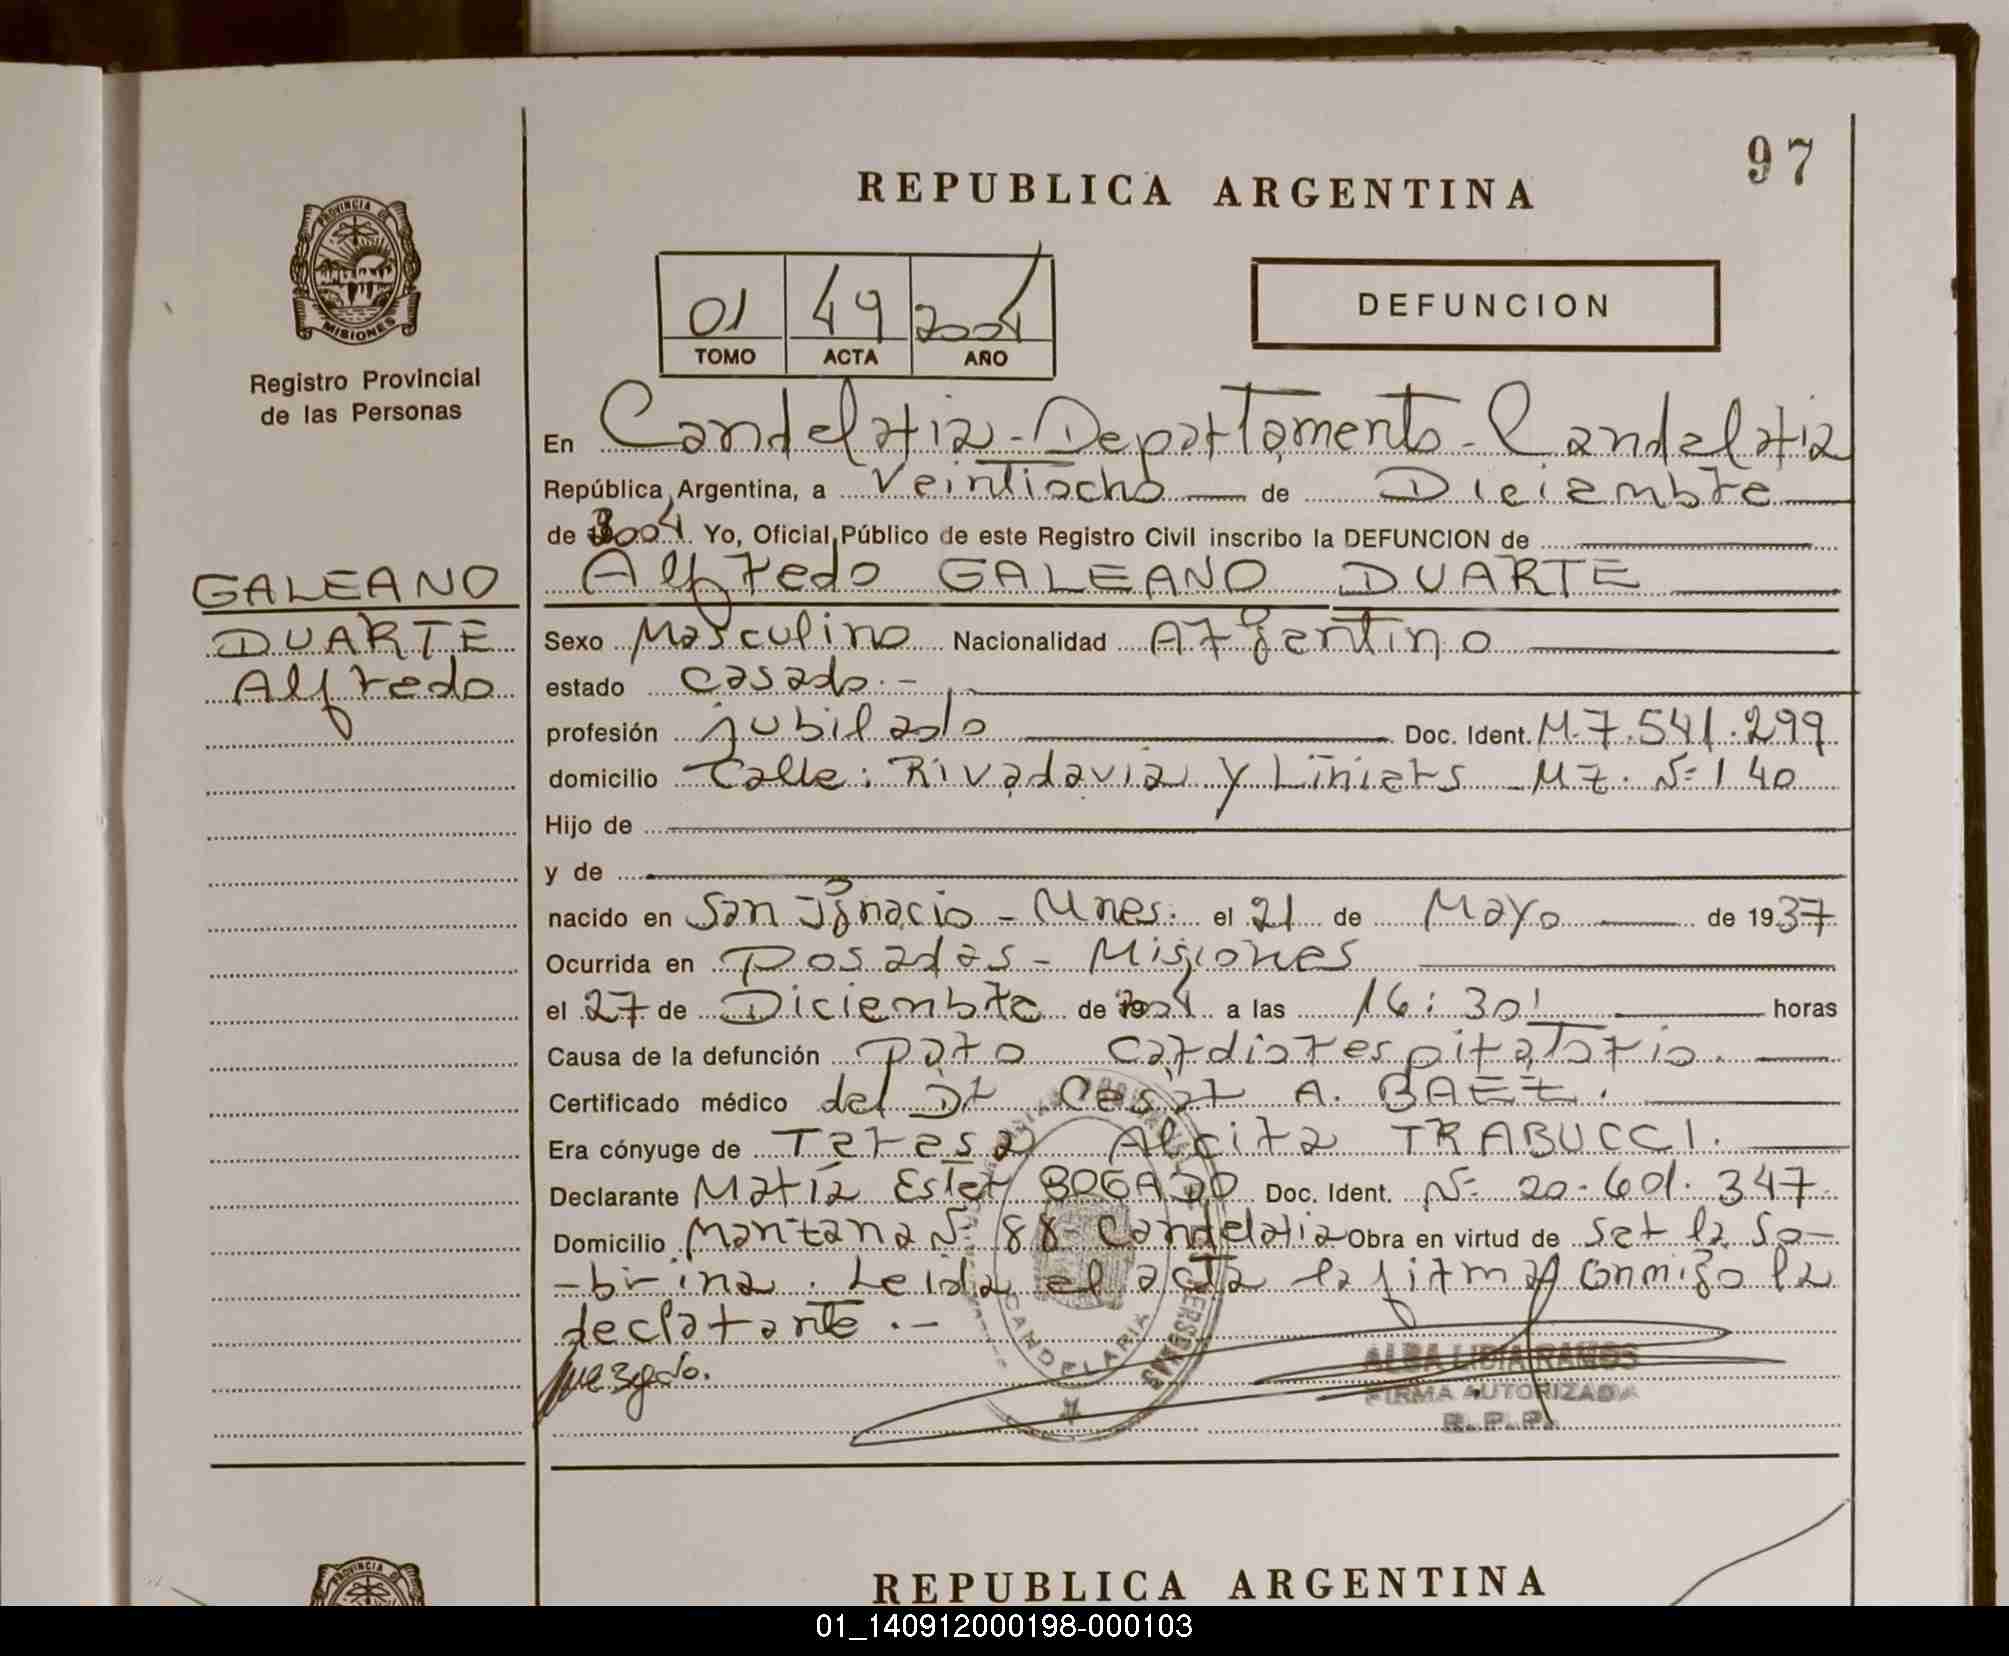 97
REPUBLICA ARGENTINA
PROVINCIA DE
MISIONES
Registro Provincial
de las Personas
01 49 2004
TOMO ACTA AÑO
DEFUNCION
En Candelaria - Departamento - Candelaria
República Argentina, a Veintiocho de Diciembre
de 2004 Yo, Oficial Público de este Registro Civil inscribo la DEFUNCION de
Alfredo GALEANO DUARTE
GALEANO
DUARTE
Alfredo
Sexo Masculino Nacionalidad Argentino
estado casado.-
profesión jubilado Doc. Ident. M.7.541.299
domicilio Calle: Rivadavia y Liniers Mz. Nº 140
Hijo de
y de
nacido en San Ignacio - Mnes. el 21 de Mayo de 1937
Ocurrida en Posadas - Misiones
el 27 de Diciembre de 2004 a las 16:30' horas
Causa de la defunción paro cardiorespiratorio.
Certificado médico del Dr Cesar A. BAEZ.
Era cónyuge de Teresa Alcira TRABUCCI.
Declarante María Ester BOGADO Doc. Ident. Nº 20.601.347
Domicilio Manzana Nº 88 Candelaria Obra en virtud de ser la so-
-brina. Leida el acta la firma conmigo la
declarante.-
CANDELARIA
ALBA LIDIA RAMOS
FIRMA AUTORIZADA
R.P.P.
REPUBLICA ARGENTINA
PROVINCIA
01_140912000198-000103